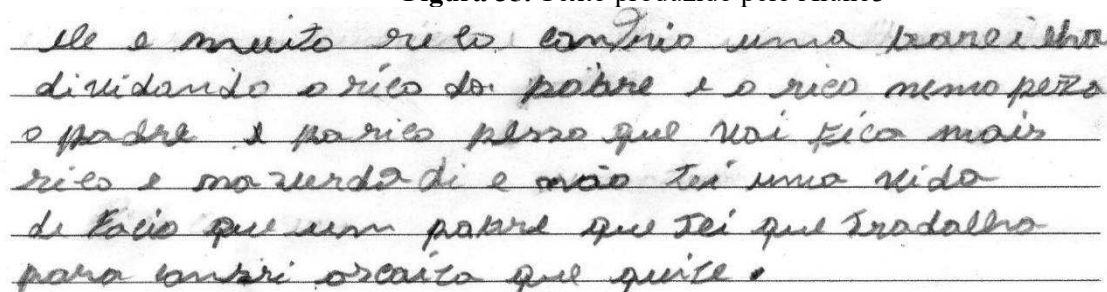 Figura 33: Texto produzido pelo Aluno3
ele e muito rico uma bareilha
dividando o rico do pobre e o rico nemo peza
o padre e parico pesso que vai fica mais
rico e na verdadi e não tei uma vida
de facio que um pobre que tei que tradalha
para que quite.